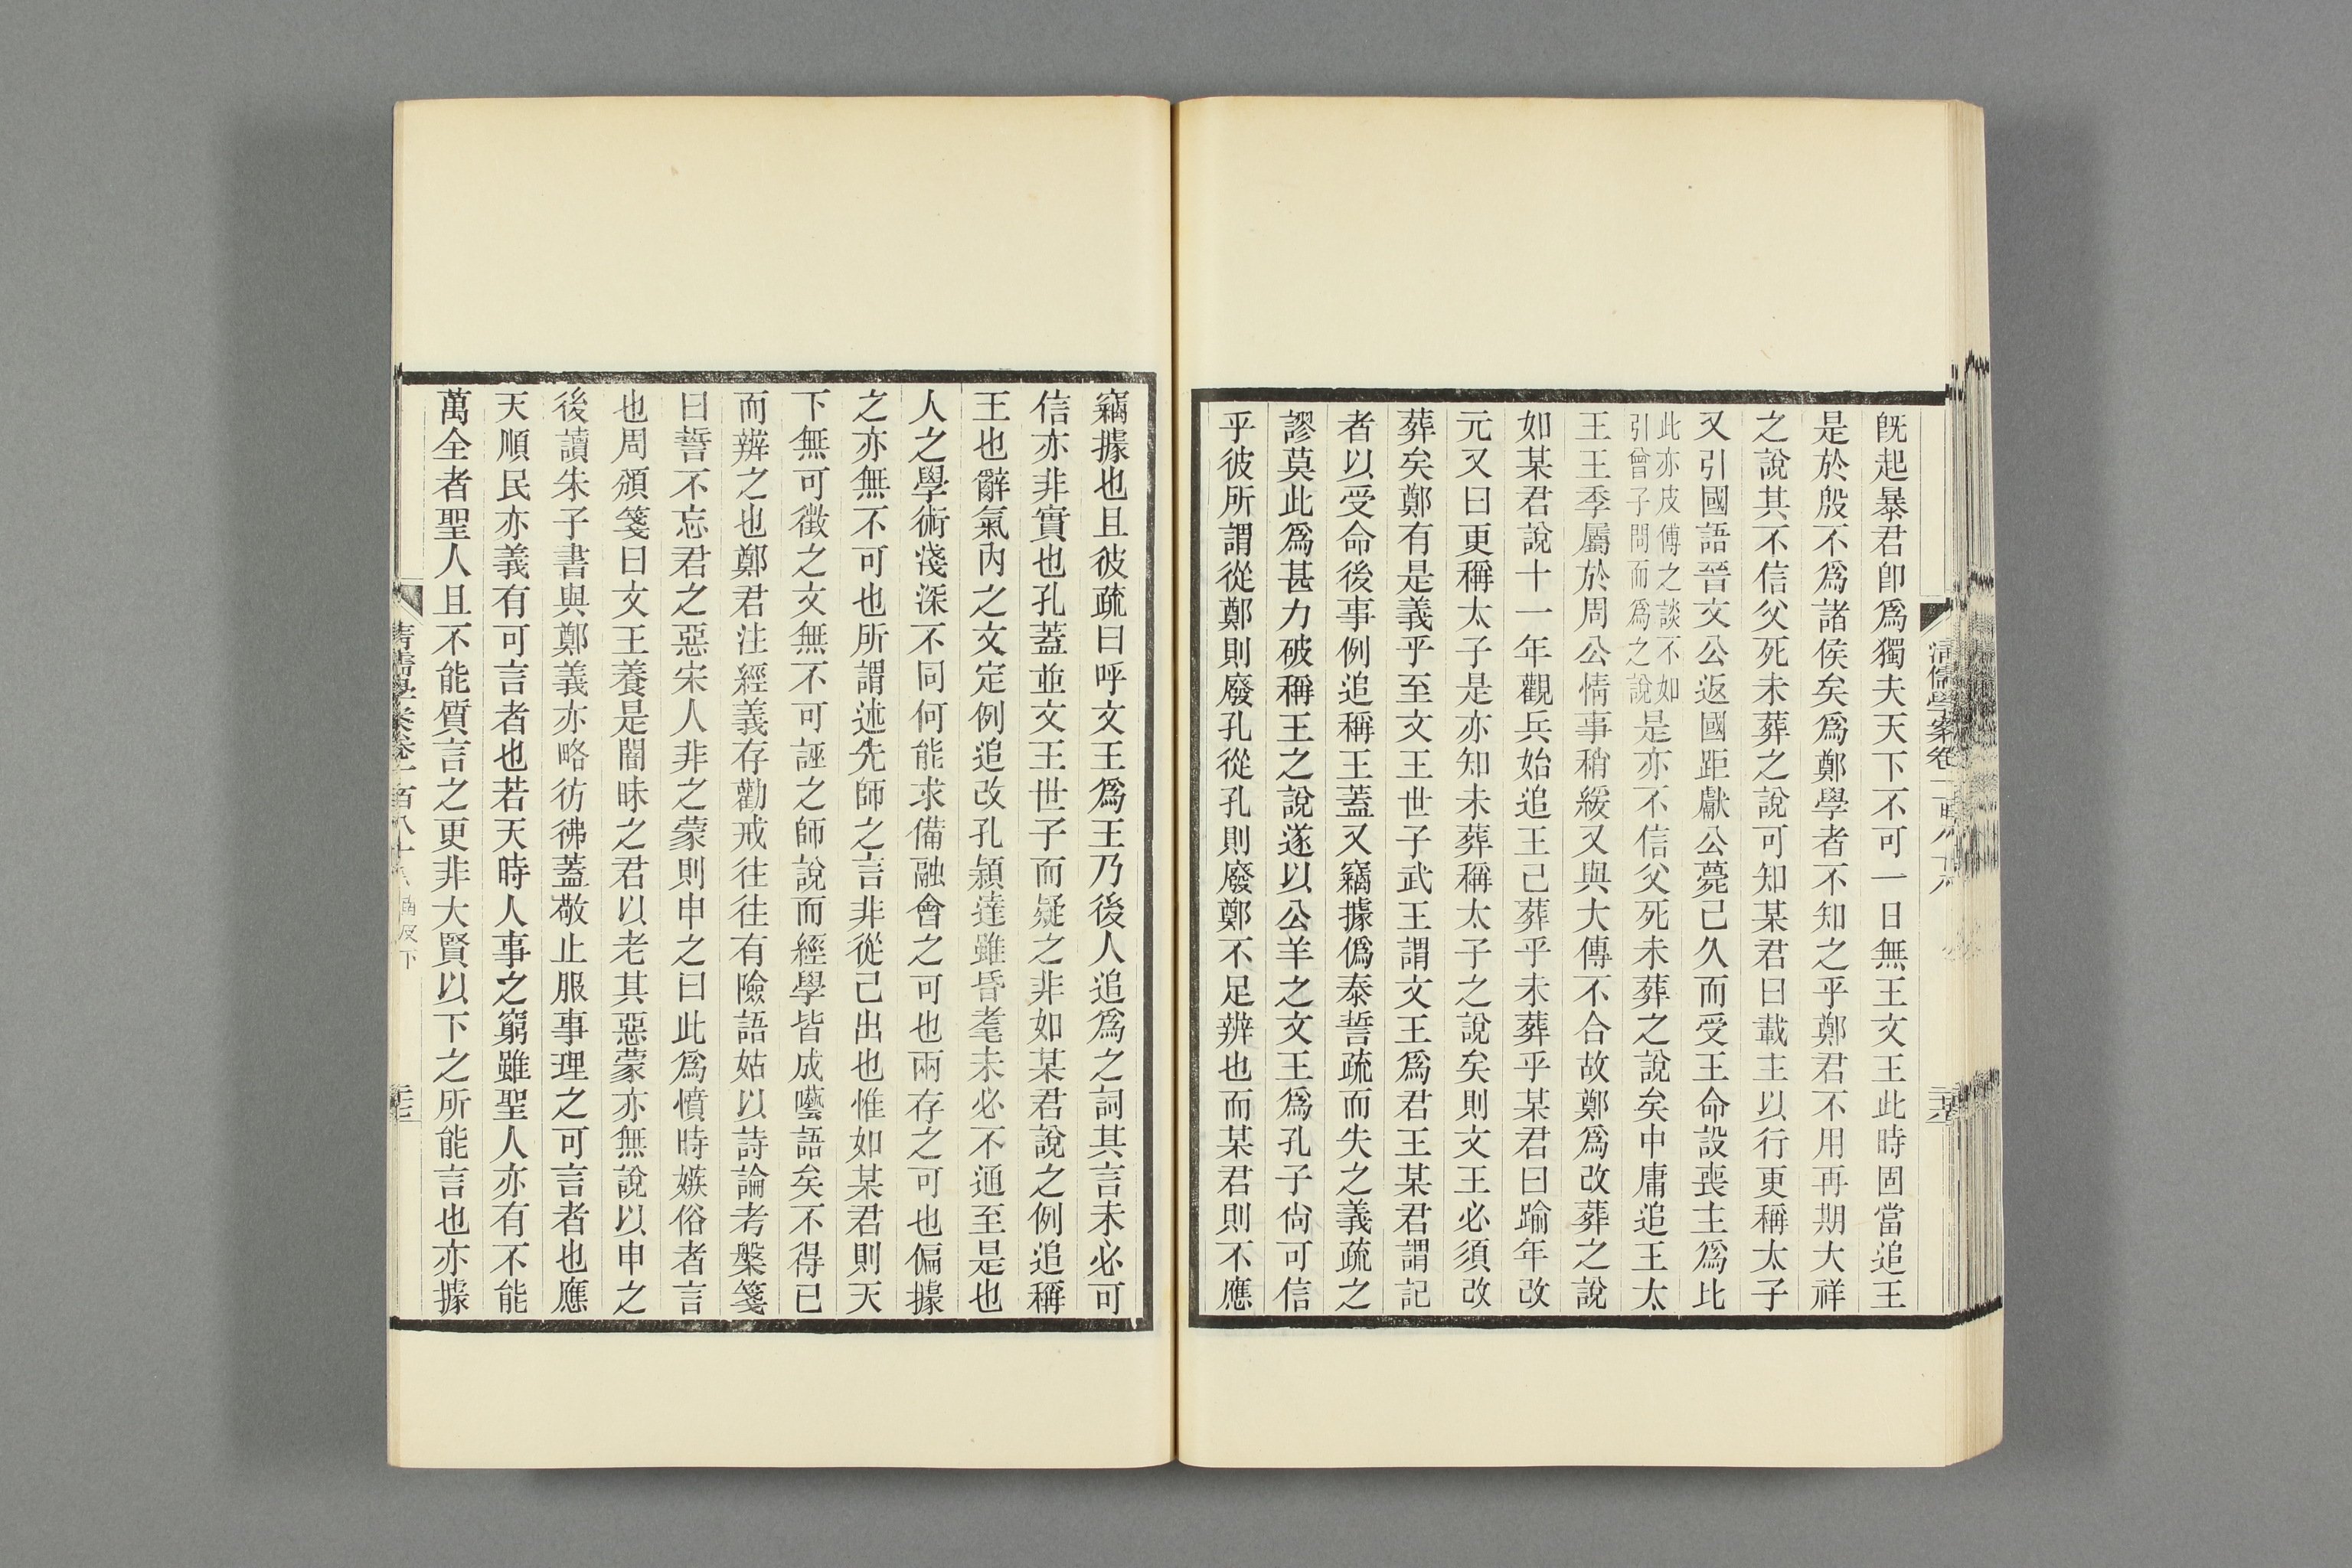 既起暴君卽爲獨夫天下不可一日無王文王此時固當追王
是於殷不爲諸侯矣爲鄭學者不知之乎鄭君不用再期大祥
之說其不信父死未葬之說可知某君曰載主以行更稱太子
又引國語晉文公返國距獻公薨己久而受王命設喪主爲比
此亦皮傅之談不如
引曾子問而爲之說
是亦不信父死未葬之說矣中庸追王太
王王季屬於周公情事稍緩又與大傳不合故鄭爲改葬之說
如某君說十一年觀兵始追王己葬乎未葬乎某君曰踰年改
元又曰更稱太子是亦知未葬稱太子之說矣則文王必須改
葬矣鄭有是義乎至文王世子武王謂文王爲君王某君謂記
者以受命後事例追稱王蓋又竊據僞泰誓疏而失之義疏之
謬莫此爲甚力破稱王之說遂以公羊之文王爲孔子尙可信
乎彼所謂從鄭則廢孔從孔則廢鄭不足辨也而某君則不應
竊據也且彼疏曰呼文王爲王乃後人追爲之詞其言未必可
信亦非實也孔蓋並文王世子而疑之非如某君說之例追稱
王也辭氣內之文定例追改孔穎達雖昏耄未必不通至是也
人之學術淺深不同何能求備融會之可也兩存之可也偏據
之亦無不可也所謂述先師之言非從己出也惟如某君則天
下無可徵之文無不可誣之師說而經學皆成囈語矣不得已
而辨之也鄭君注經義存勸戒往往有險語姑以詩論考槃箋
曰誓不忘君之惡宋人非之蒙則申之曰此爲憤時嫉俗者言
也周頌箋曰文王養是闇昧之君以老其惡蒙亦無說以申之
後讀朱子書與鄭義亦略彷彿蓋敬止服事理之可言者也應
天順民亦義有可言者也若天時人事之窮雖聖人亦有不能
萬全者聖人且不能質言之更非大賢以下之所能言也亦據